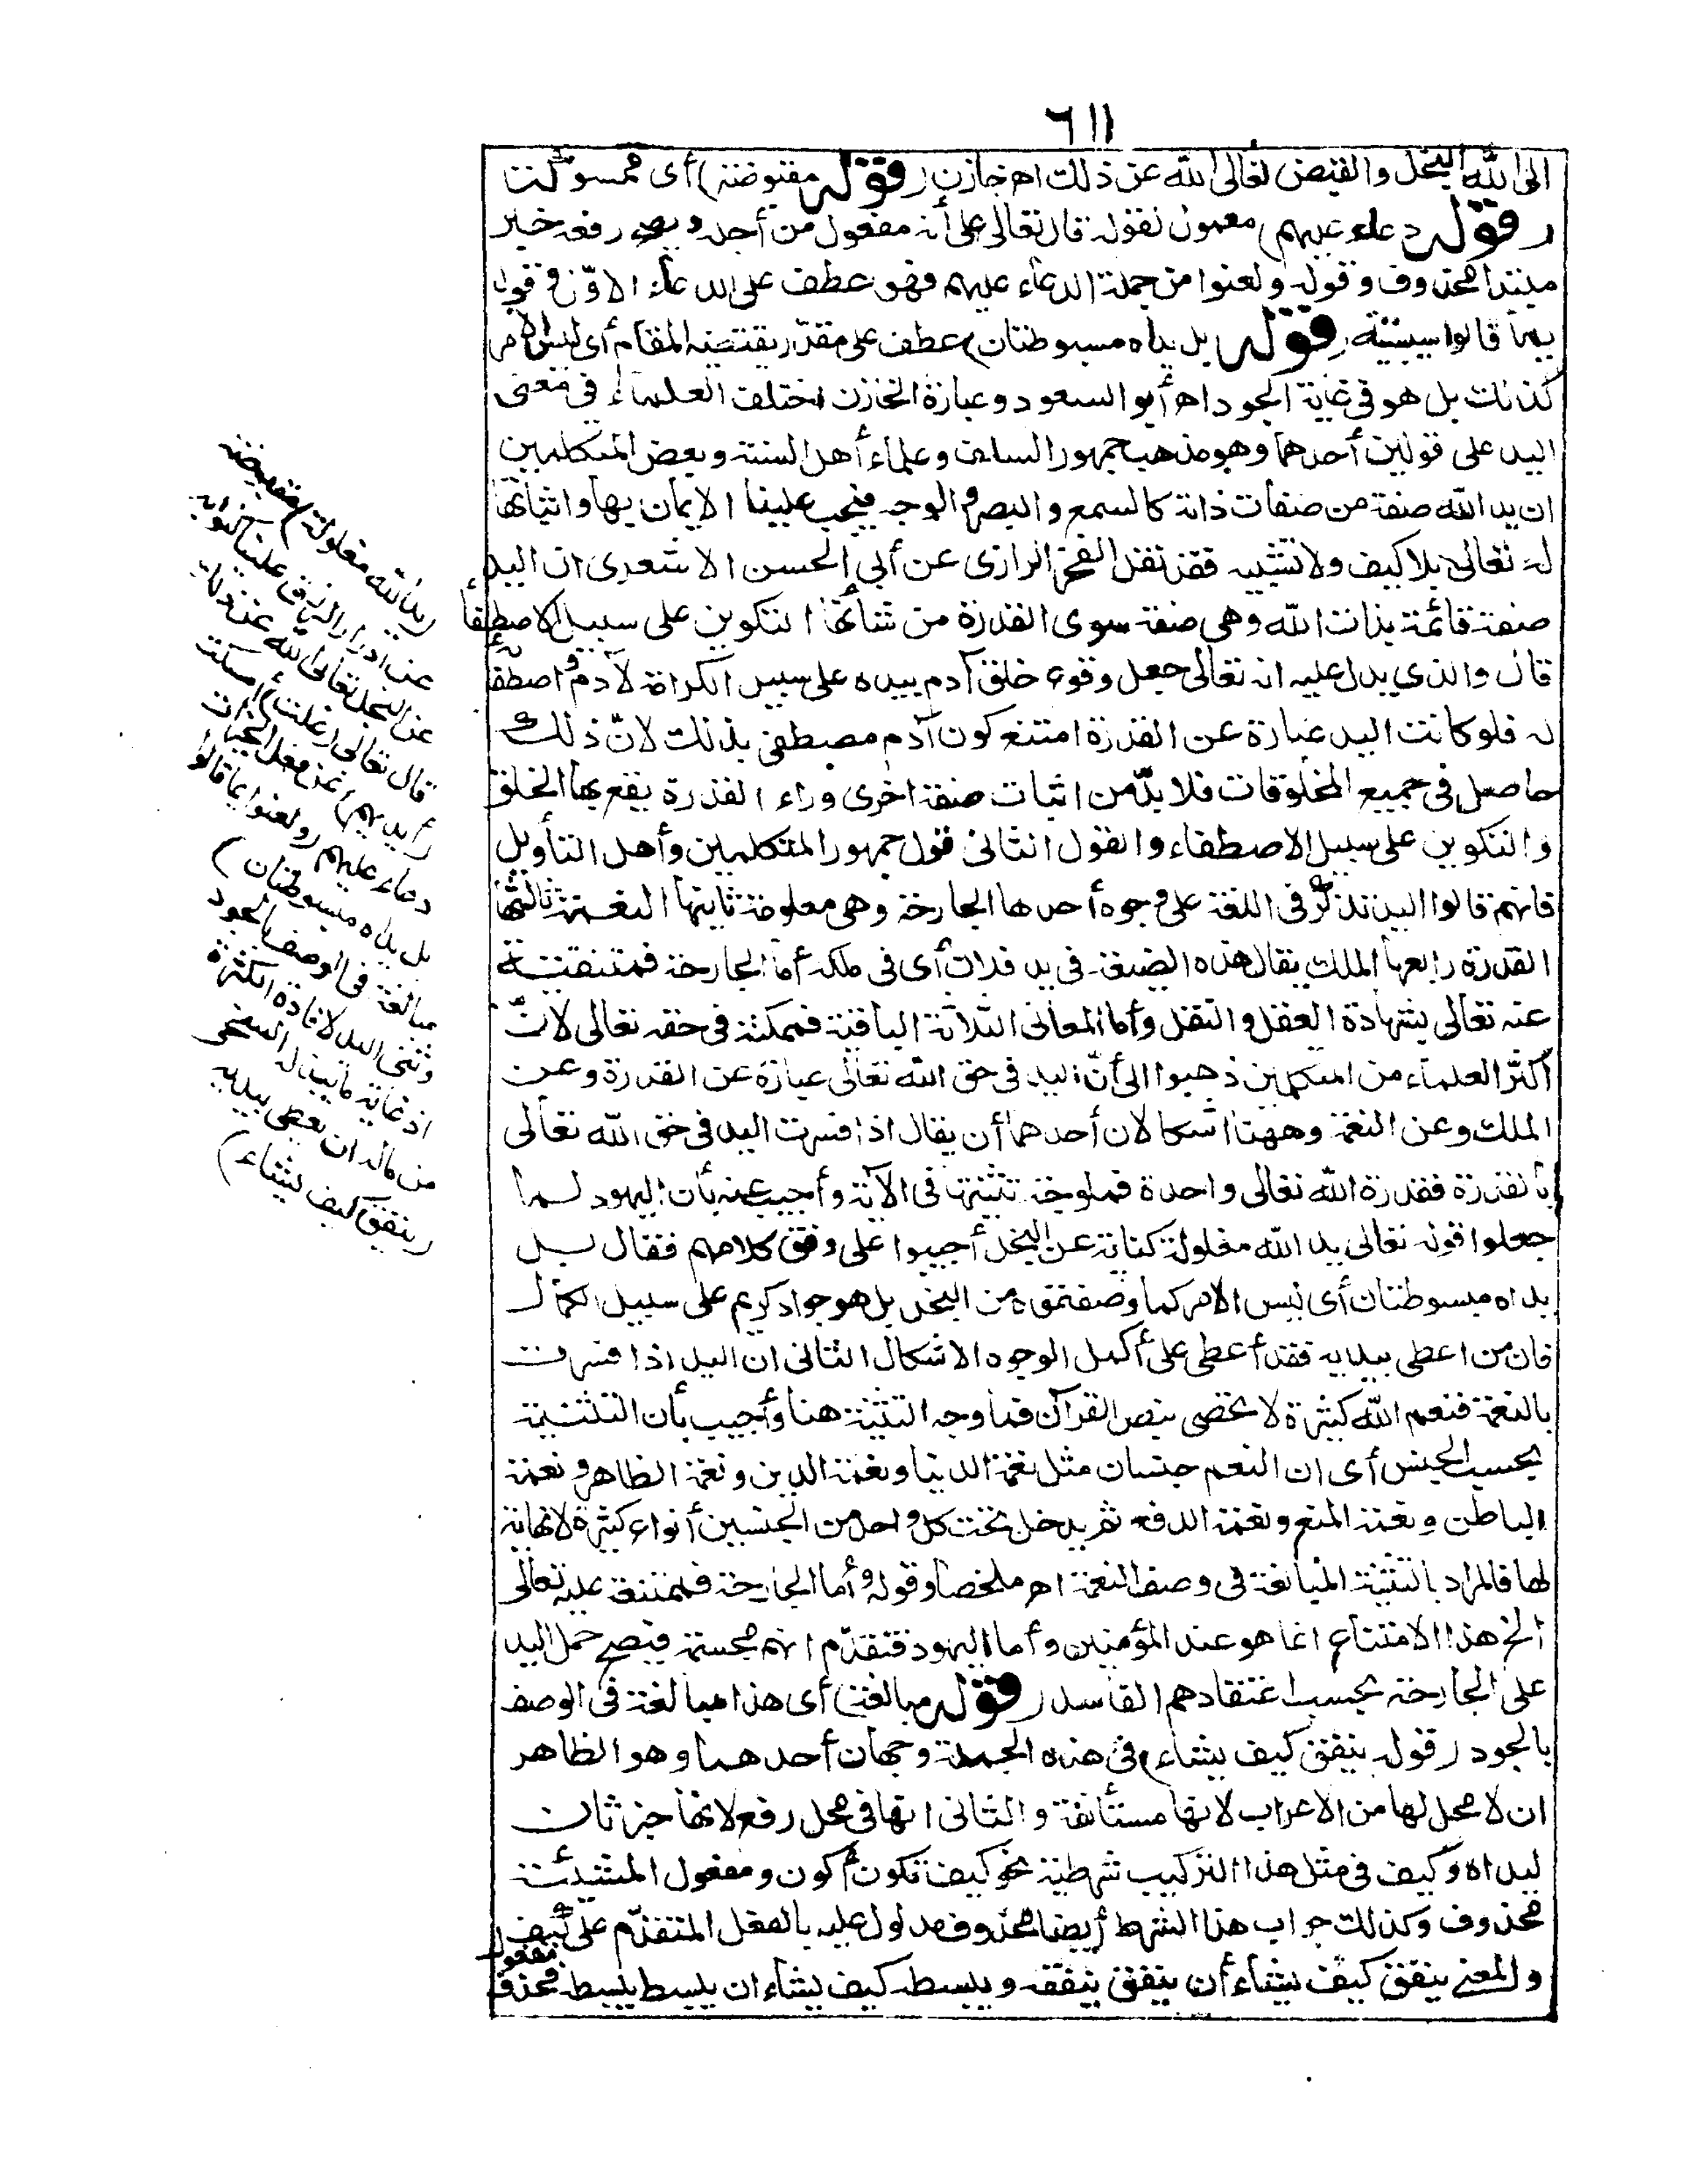 ٦١١
الى الله البخل والقبض تعالى الله عن ذلك اه خازن (قوله مقبوضة) أى ممسوكة
(قوله دعاء عليهم) معمول لقوله قال تعالى على أنه مفعول من أجله ويصح رفعه خبر
مبتدا محذوف وقوله ولعنوا من جملة الدعاء عليهم فهو عطف على الدعاء الاوّل فى قوله
بما قالوا سببية (قوله بل يداه مبسوطتان) عطف على مقدّر يقتضيه المقام أى ليس الامر
كذلك بل هو فى غاية الجود اه أبو السعود وعبارة الخازن اختلف العلماء فى معنى
اليد على قولين أحدهما وهو مذهب جمهور السلف وعلماء أهل السنة وبعض المتكلمين
ان يد الله صفة من صفات ذاته كالسمع والبصر والوجه فيجب علينا الايمان بها واثباتها
له تعالى بلا كيف ولا تشبيه فقد نقل الفخر الرازى عن أبي الحسن الاشعرى ان اليد
صفة قائمة بذات الله وهي صفة سوى القدرة من شأنها التكوين على سبيل الاصطفاء
قال والذي يدل عليه انه تعالى جعل وقوع خلق آدم بيده على سبيل الكرامة لآدم واصطفائه
له فلو كانت اليد عبارة عن القدرة امتنع كون آدم مصطفى بذلك لانّ ذلك
حاصل فى جميع المخلوقات فلا بدّ من اثبات صفة اخرى وراء القدرة يقع بها الخلق
والتكوين على سبيل الاصطفاء والقول الثانى قول جمهور المتكلمين وأهل التأويل
فانهم قالوا اليد تذكر فى اللغة على وجوه أحدها الجارحة وهى معلومة ثانيها النعمة ثالثها
القدرة رابعها الملك يقال هذه الضيعة فى يد فلان أى فى ملكه أما الجارحة فمنتفية
عنه تعالى بشهادة العقل والنقل وأما المعانى الثلاثة الباقية فممكنة فى حقه تعالى لانّ
أكثر العلماء من المتكلمين ذهبوا الى أنّ اليد فى حق الله تعالى عبارة عن القدرة وعن
الملك وعن النعمة وههنا اشكالان أحدهما أن يقال اذا فسرت اليد فى حق الله تعالى
بالقدرة فقدرة الله تعالى واحدة فما وجه تثنيتها فى الآية وأجيب عنه بأن اليهود لما
جعلوا قوله تعالى يد الله مغلولة كناية عن البخل أجيبوا على وفق كلامهم فقال بل
يداه مبسوطتان أى ليس الامر كما وصفتموه من البخل بل هو جواد كريم على سبيل الكمال
فان من اعطى بيديه فقد أعطى على أكمل الوجوه الاشكال الثانى ان اليد اذا فسرت
بالنعمة فنعم الله كثيرة لا تحصى بنص القرآن فما وجه التثنية هنا وأجيب بأن التثنية
بحسب الجنس أى ان النعم جنسان مثل نعمة الدنيا ونعمة الدين ونعمة الظاهر ونعمة
الباطن ونعمة المنع ونعمة الدفع ثم يدخل تحت كل واحد من الجنسين أنواع كثيرة لا نهاية
لها فالمراد بالتثنية المبالغة فى وصف النعمة اه ملخصا وقوله وأما الجارحة فممتنعة عليه تعالى
الخ هذا الامتناع انما هو عند المؤمنين وأما اليهود فتقدّم انهم مجسمة فيصح حمل اليد
على الجارحة بحسب اعتقادهم الفاسد (قوله مبالغة) أى هذا مبالغة فى الوصف
بالجود (قوله ينفق كيف يشاء) فى هذه الجملة وجهان أحدهما وهو الظاهر
ان لا محل لها من الاعراب لانها مستأنفة والثانى انها فى محل رفع لانها خبر ثان
ليداه وكيف فى مثل هذا التركيب شرطية نحو كيف تكون أكون ومفعول المشيئة
محذوف وكذلك جواب هذا الشرط أيضا محذوف مدلول عليه بالفعل المتقدّم على كيف
والمعنى ينفق كيف يشاء أن ينفق ينفق ويبسط كيف يشاء ان يبسط يبسط فحذف مفعول
(يد الله مغلولة) مقبوضة
عن ادرار الرزق علينا كنوا به
عن البخل تعالى الله عن ذلك
قال تعالى (غلت) أمسكت
(أيديهم) عن فعل الخيرات
دعاء عليهم (ولعنوا بما قالوا
بل يداه مبسوطتان)
مبالغة فى الوصف بالجود
وثنى اليد لافادة الكثرة
اذ غاية ما يبذله السخى
من ماله ان يعطى بيديه
(ينفق كيف يشاء)